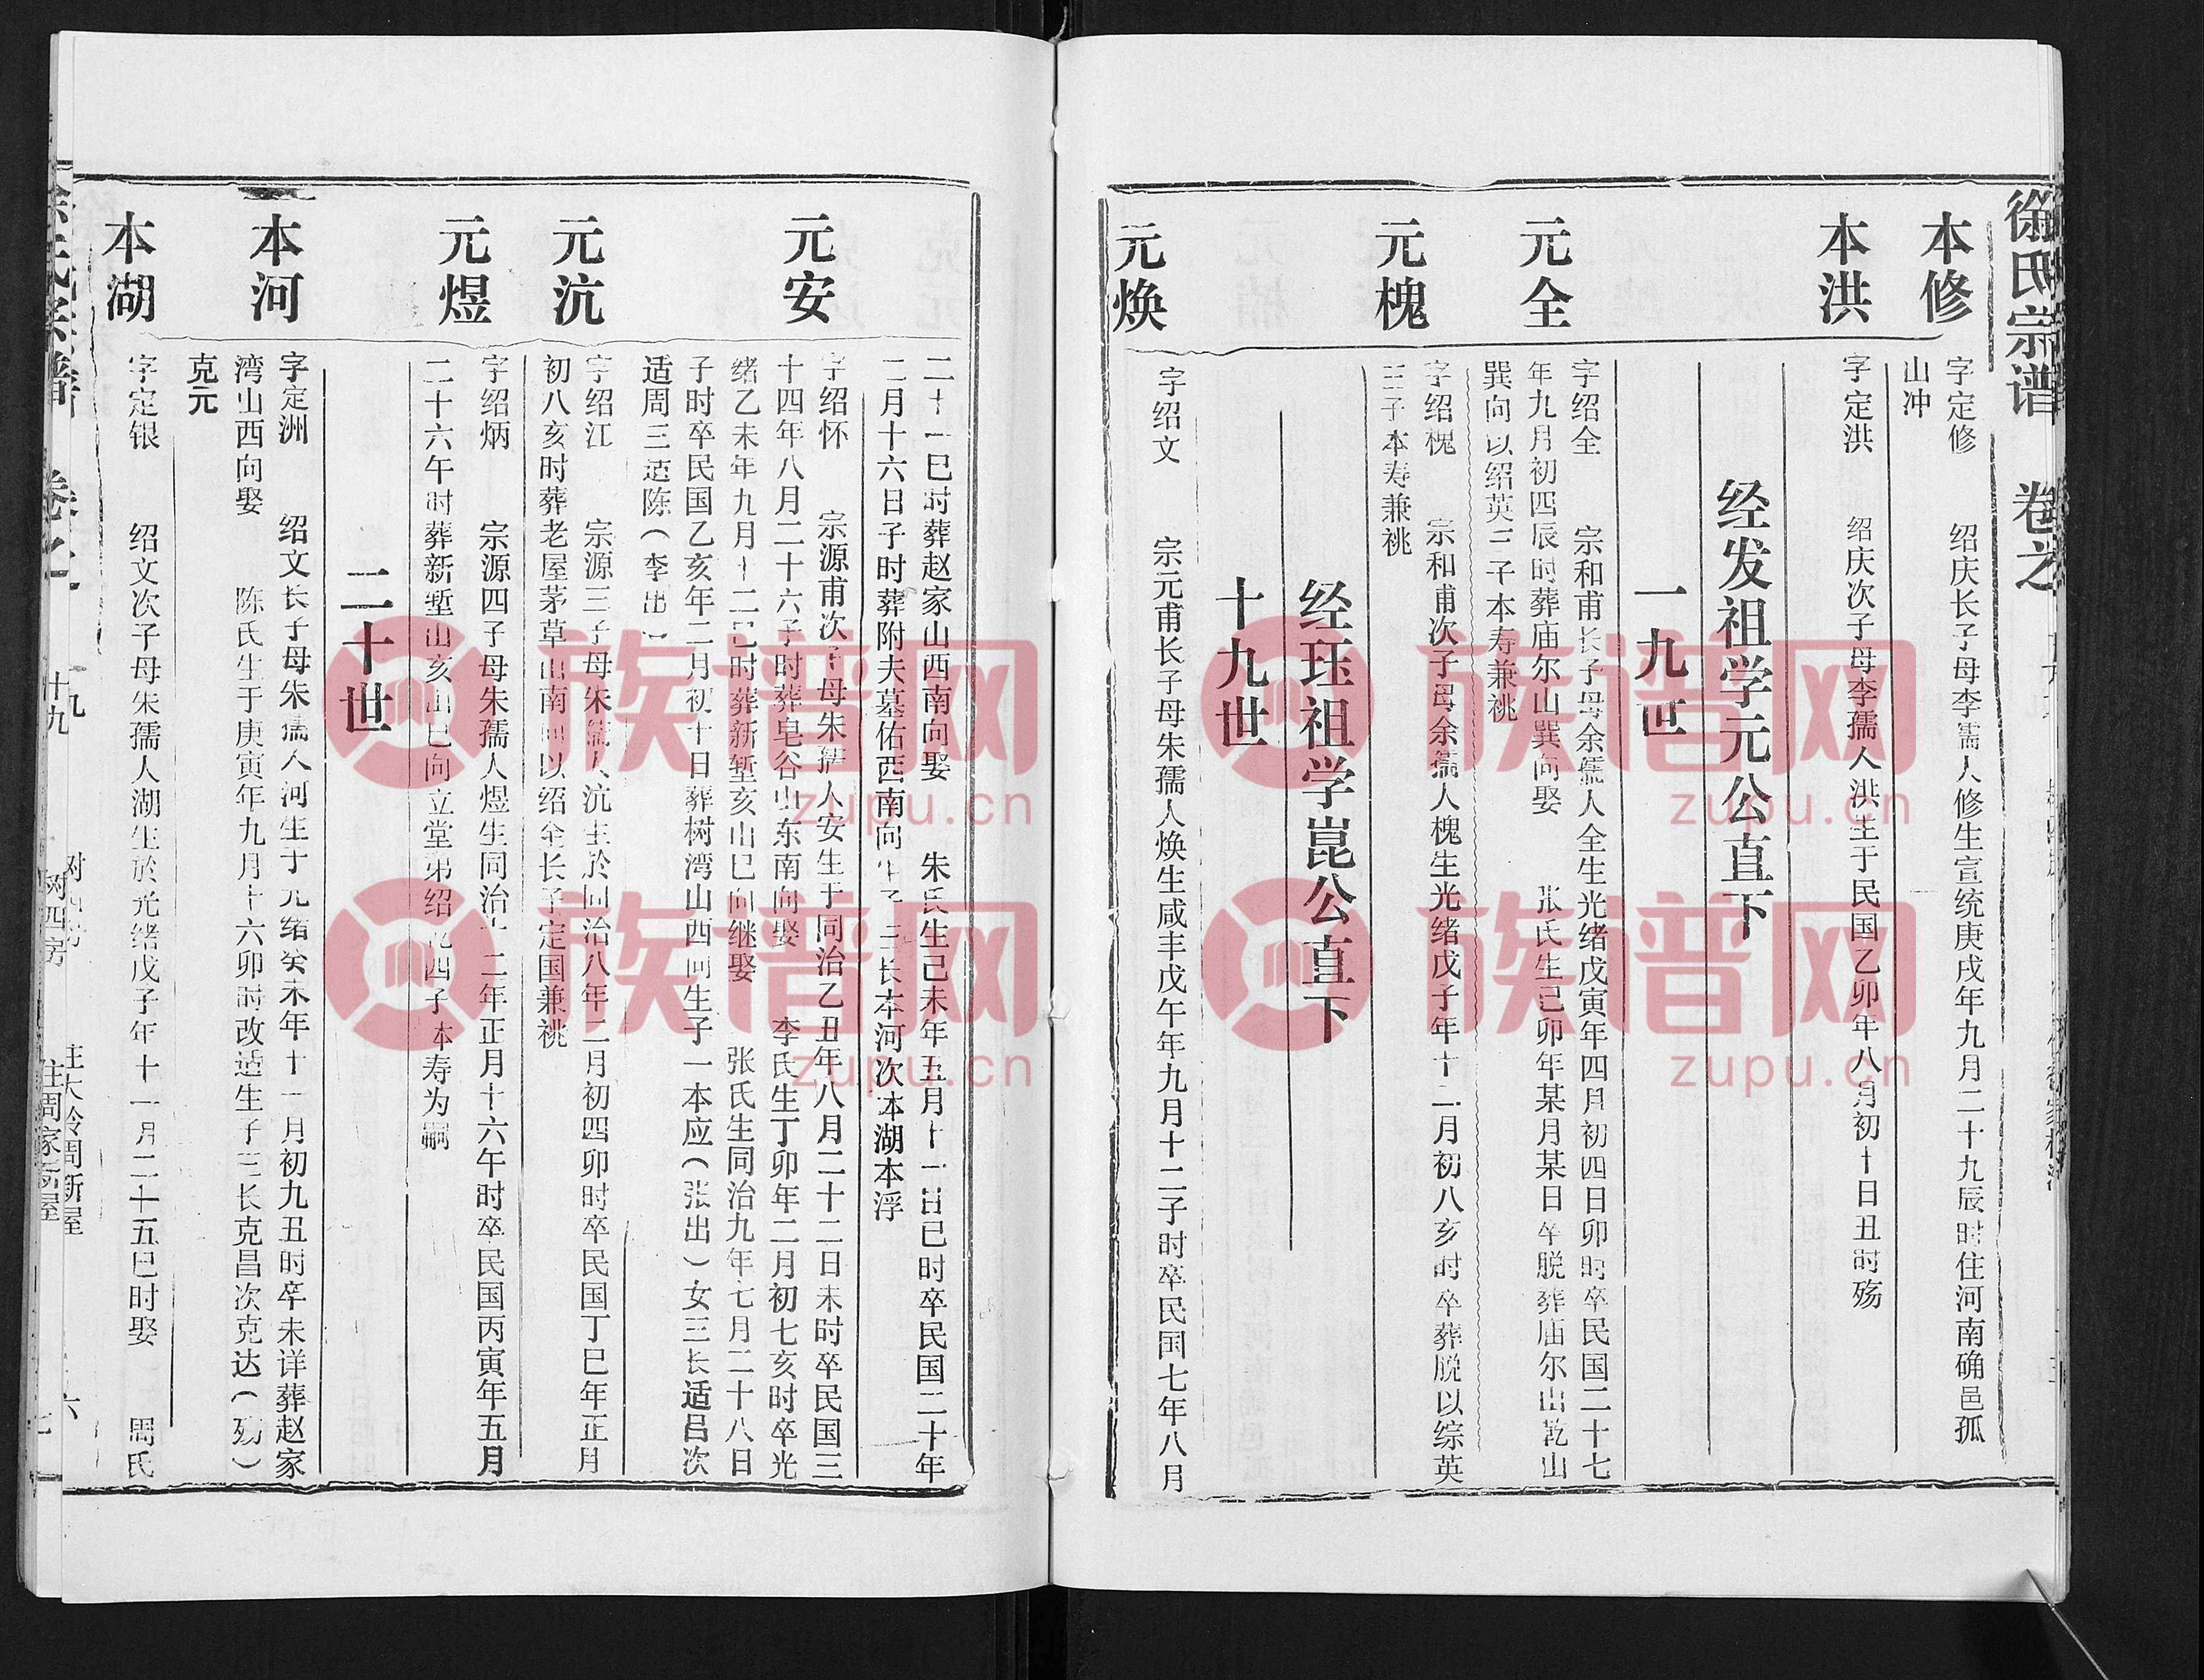 徐氏宗谱 卷之
本修
字定修 绍庆长子母李孺人修生宣统庚戌年九月二十九辰时住河南确邑孤
山冲
本洪
字定洪 绍庆次子母李孺人洪生于民国乙卯年八月初十日丑时殇
经发祖学元公直下
一九世
元全
字绍全 宗和甫长子母余孺人全生光绪戊寅年四月初四日卯时卒民国二十七
年九月初四辰时葬庙尔山巽向娶 张氏生己卯年某月某日卒脱葬庙尔山乾山
巽向以绍英三子本寿兼祧
元槐
字绍槐 宗和甫次子母余孺人槐生光绪戊子年十二月初八亥时卒葬脱以综英
三子本寿兼祧
经珏祖学崑公直下
十九世
元焕
字绍文 宗元甫长子母朱孺人焕生咸丰戊午年九月十二子时卒民国七年八月
二十一巳时葬赵家山西南向娶 朱氏生己未年五月十一日巳时卒民国二十年
二月十六日子时葬附夫墓佑西南向生子三长本河次本湖本浮
元安
字绍怀 宗源甫次子母朱孺人安生于同治乙丑年八月二十二日未时卒民国三
十四年八月二十六子时葬皂谷山东南向娶 李氏生丁卯年二月初七亥时卒光
绪乙未年九月十二巳时葬新堑亥山巳向继娶 张氏生同治九年七月二十八日
子时卒民国乙亥年二月初十日葬树湾山西向生子一本应（张出）女三长适吕次
适周三适陈（李出）
元沆
字绍江 宗源三子母朱孺人沆生於同治八年二月初四卯时卒民国丁巳年正月
初八亥时葬老屋茅草山南向以绍全长子定国兼祧
元煜
字绍炳 宗源四子母朱孺人煜生同治十二年正月十六午时卒民国丙寅年五月
二十六午时葬新堑山亥山巳向立堂弟绍 四子本寿为嗣
二十世
本河
字定洲 绍文长子母朱孺人河生于光绪癸未年十一月初九丑时卒未详葬赵家
湾山西向娶 陈氏生于庚寅年九月十六卯时改适生子三长克昌次克达（殇）
克元
本湖
字定银 绍文次子母朱孺人湖生於光绪戊子年十一月二十五巳时娶 周氏
十九
树四房
住周家新屋
族谱网
zupu.cn
族谱网
zupu.cn
族谱网
zupu.cn
族谱网
zupu.cn